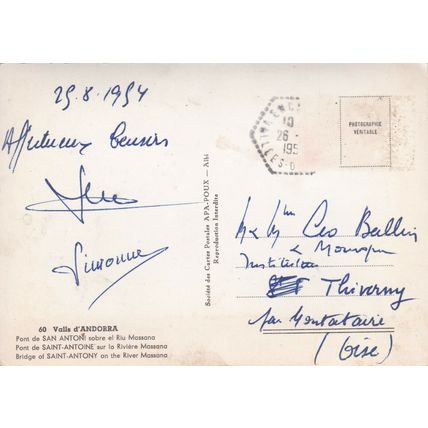 25.8.1954
Affectueux Baisers
Simonne
60 Valls d'ANDORRA
Pont de SAN ANTONI sobre el Riu Massana
Pont de SAINT-ANTOINE sur la Rivière Massana
Bridge of SAINT-ANTONY on the River Massana
Société des Cartes Postales APA-POUX — Albi
Reproduction Interdite
10
26 -
195
PHOTOGRAPHIE
VÉRITABLE
M & Mme Léo
&
Thiverny
par Montataire
(Oise)